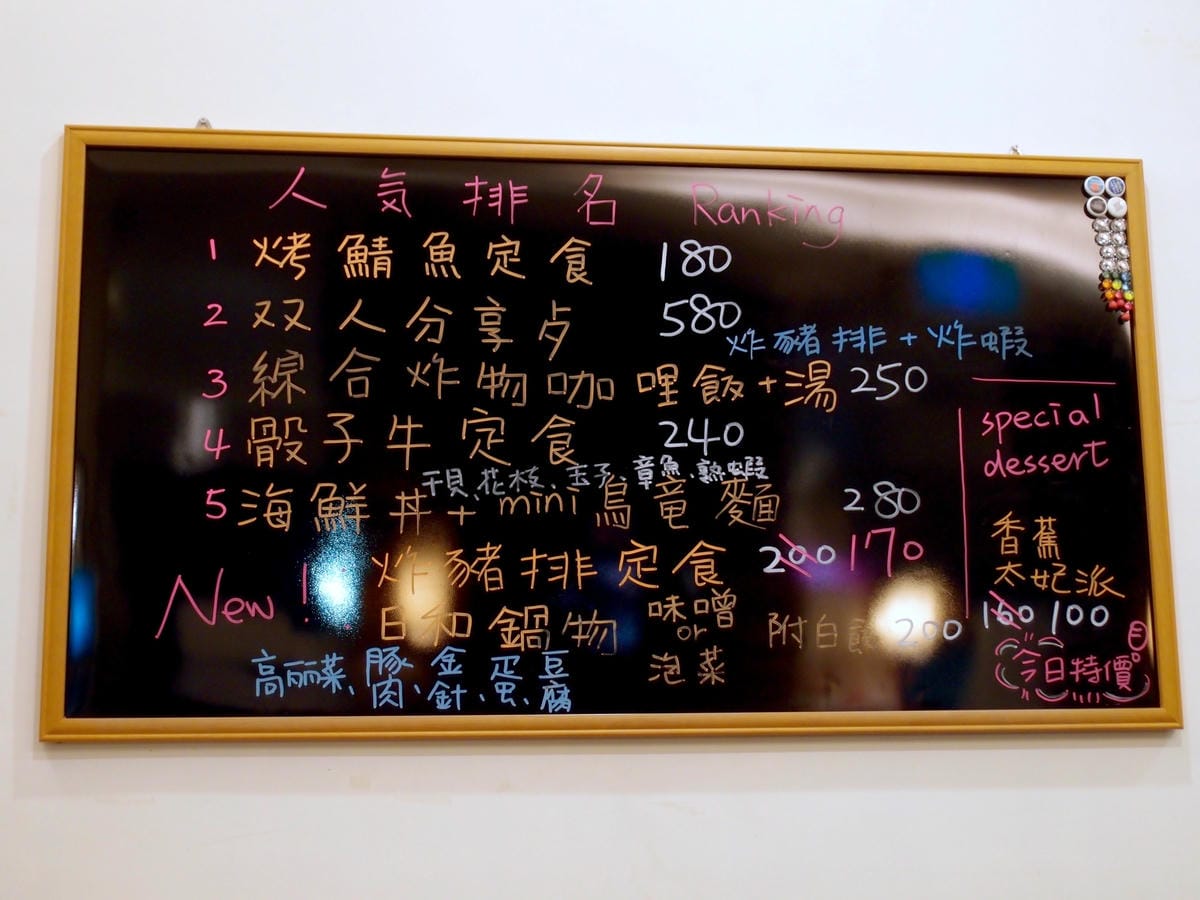 人気排名 Ranking
1 烤鯖魚定食 180
2 双人分享歺 580
炸豬排+炸蝦
3 綜合炸物咖哩飯+湯 250
4 骰子牛定食 240
干貝、花枝、玉子、章魚、熟蝦
5 海鮮丼+mini烏竜麵 280
New! 炸豬排定食 200 170
日和鍋物 味噌 or 泡菜 附白飯 200
高丽菜、豚肉、金針、蛋、豆腐
special
dessert
香蕉
太妃派
160 100
今日特價